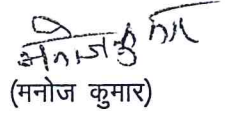 मनोज कुमार
(मनोज कुमार)